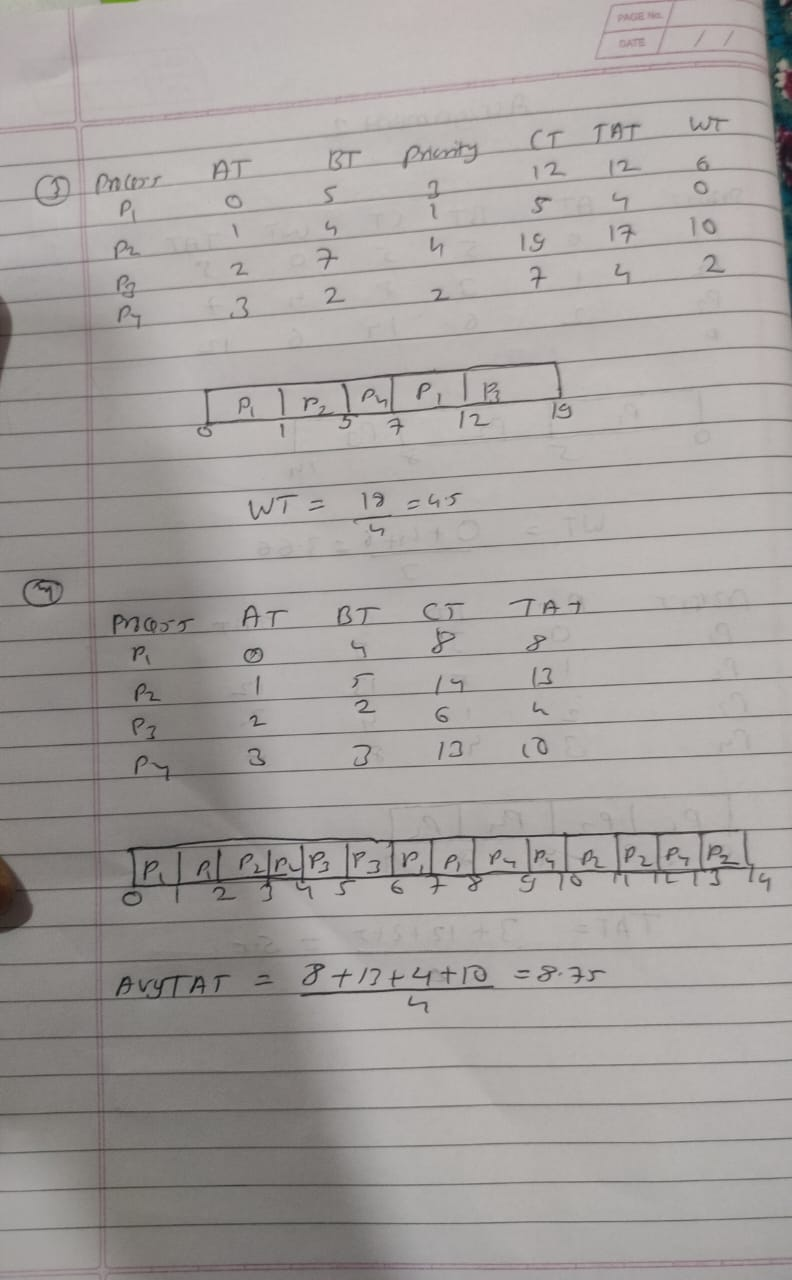 PAGE No.
DATE / /
③ Process AT BT Priority CT TAT WT
P1 0 5 3 12 12 6
P2 1 4 1 5 4 0
P3 2 7 4 19 17 10
P4 3 2 2 7 4 2
P1 P2 P4 P1 P3
0 1 5 7 12 19
WT = 18/4 = 4.5
④
Process AT BT CT TAT
P1 0 4 8 8
P2 1 5 14 13
P3 2 2 6 4
P4 3 3 13 10
P1 P1 P2 P4 P3 P3 P1 P1 P4 P4 P2 P2 P4 P2
0 1 2 3 4 5 6 7 8 9 10 11 12 13 14
AvgTAT = 8+13+4+10/4 = 8.75